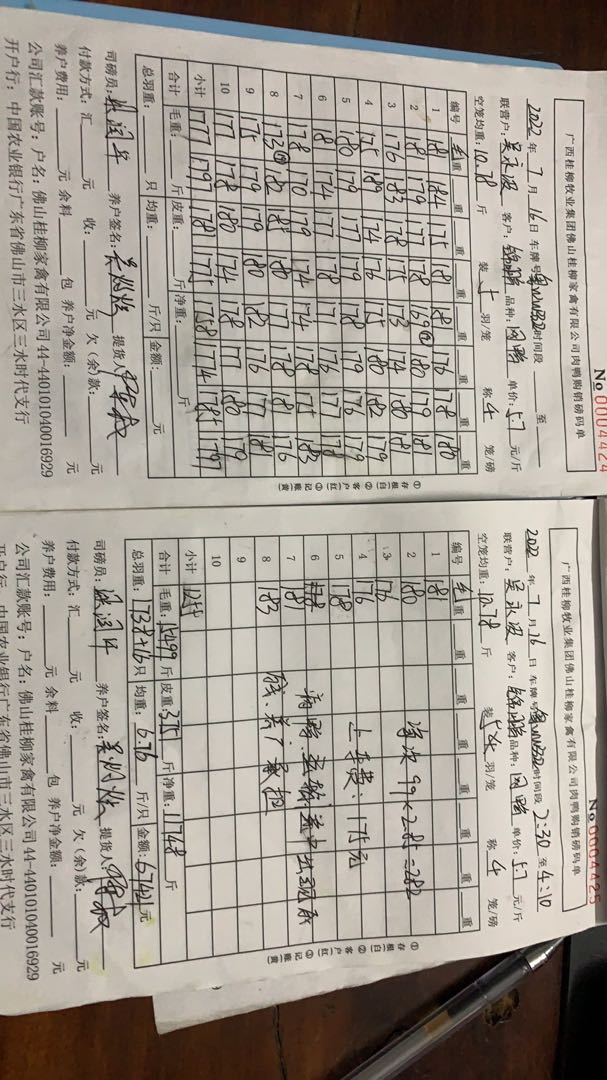 广西桂柳牧业集团佛山桂柳家禽有限公司肉鸭购销磅码单
№ 0004424
2022 年 7 月 16 日 车牌号 时间段 至
联营户: 吴永波 客户: 品种: 肉鸭 单价: 5.7 元/斤
空笼均重: 10.78 斤 装 5 羽/笼 称 4 笼/磅
编号 毛重 重 重 重 重 重 重 重
1 181 184 175 181 181 176 178 180
2 181 179 177 178 169 180 179 181
3 176 183 178 175 173 174 180 181
4 175 189 174 176 175 180 182 179
5 180 179 177 176 178 179 176 176
6 181 174 177 178 178 176 177 178
7 178 170 179 174 174 177 175 183
8 173 182 185 180 177 178 181 176
9 175 179 179 180 182 176 177 181
10 177 178 180 174 178 177 180 179
小计 1777 1797 1781 1775 1758 1774 1785 1797
合计 毛重: 斤 皮重: 斤 净重: 斤
总羽重: 只 均重: 斤/只 金额:
司磅员: 养户签名: 提货人:
付款方式: 汇 元 收: 元 欠(余)款: 元
养户费用: 元 余料 包 养户净金额: 元
公司汇款账号: 户名: 佛山桂柳家禽有限公司 44-440101040016929
开户行: 中国农业银行广东省佛山市三水区三水时代支行
①存根(白) ②客户(红) ③记账(黄)
广西桂柳牧业集团佛山桂柳家禽有限公司肉鸭购销磅码单
№ 0004425
2022 年 7 月 16 日 车牌号 时间段 2:30 至 4:10
联营户: 吴永波 客户: 品种: 肉鸭 单价: 5.7 元/斤
空笼均重: 10.78 斤 装 5头 羽/笼 称 4 笼/磅
编号 毛重 重 重 重 重 重 重 重
1 181
2 180 99×2.85=282
3 176
4 176 上车费: 175元
5 178
6
7 181
8 183
9
10
小计 1255
合计 毛重: 15499 斤 皮重: 3751 斤 净重: 11748 斤
总羽重: 1738+16 只 均重: 6.76 斤/只 金额: 67421 元
司磅员: 养户签名: 提货人:
付款方式: 汇 元 收: 元 欠(余)款: 元
养户费用: 元 余料 包 养户净金额: 元
公司汇款账号: 户名: 佛山桂柳家禽有限公司 44-440101040016929
开户行: 中国农业银行广东省佛山市三水区三水时代支行
①存根(白) ②客户(红) ③记账(黄)